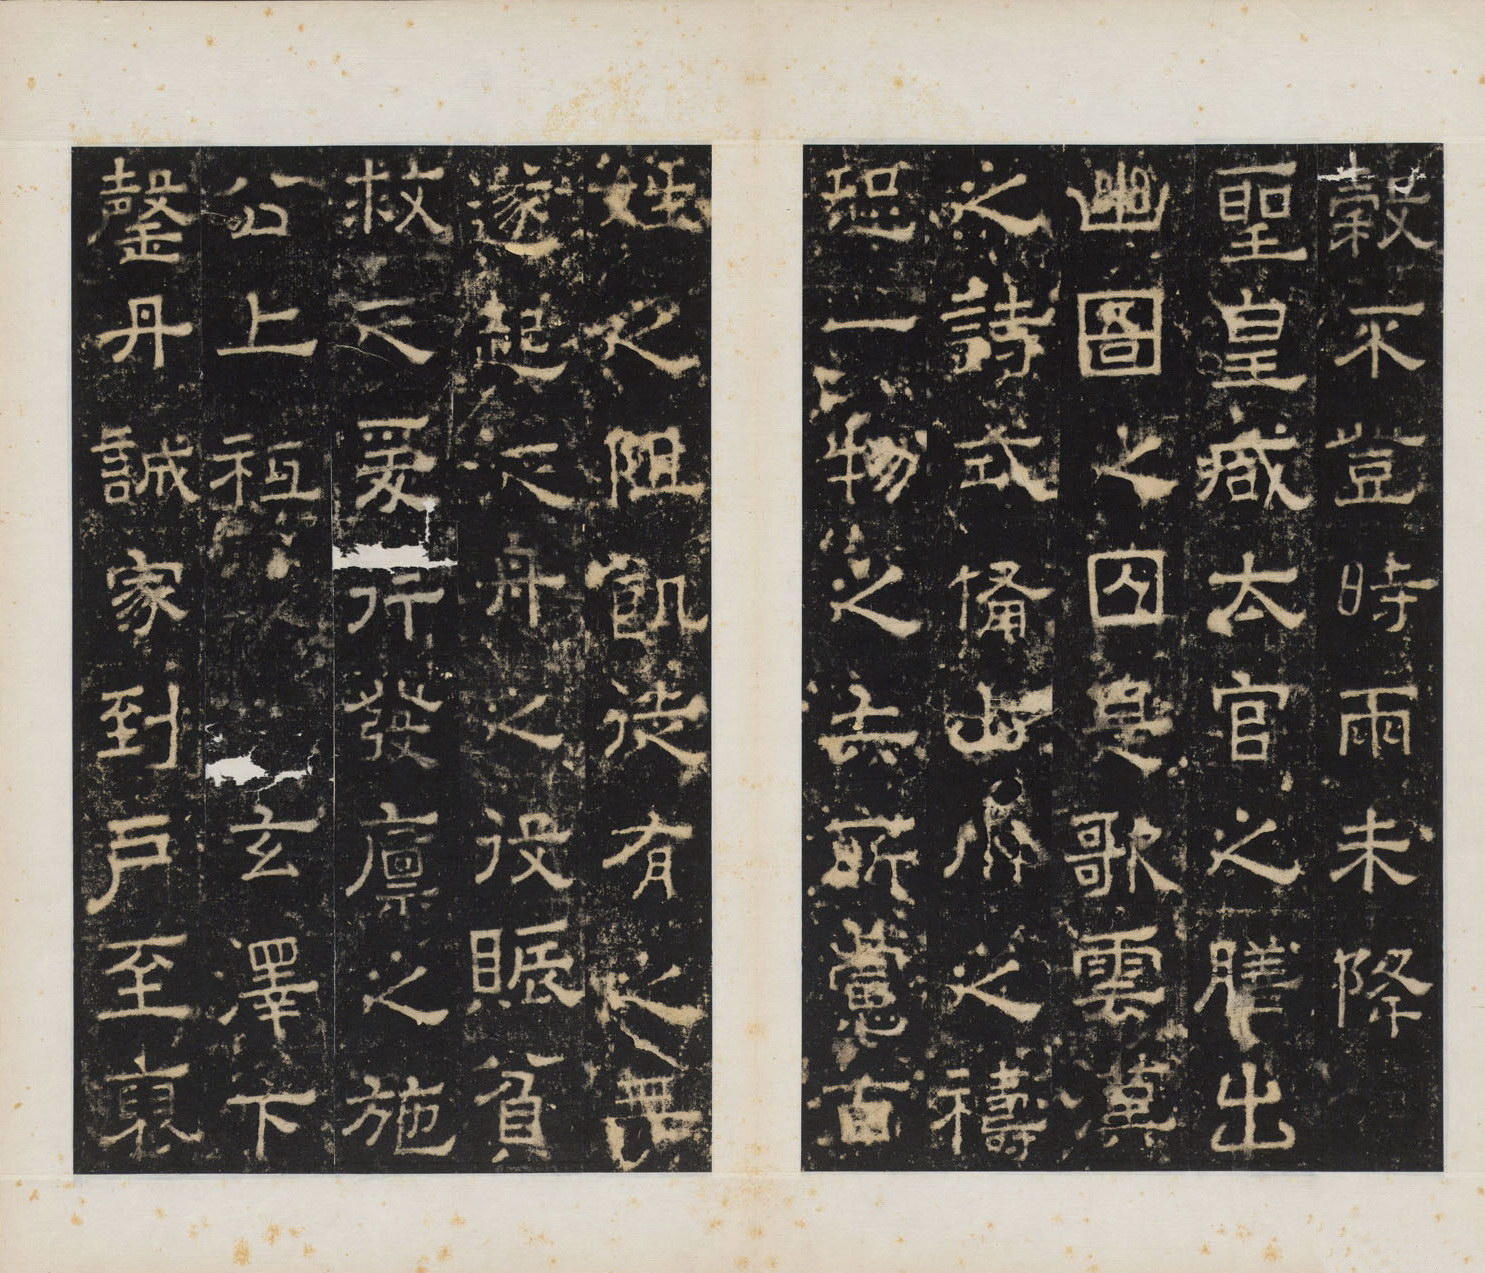 穀不登時雨未降
聖皇減太官之膳出
幽圄之囚是歌雲漢
之詩式備山之禱
恐一物之失所慮百
姓之阻飢徙有之無
遂起舟之役賑貧
救乏爰行發廩之施
公上祗玄澤下
罄丹誠家到戶至